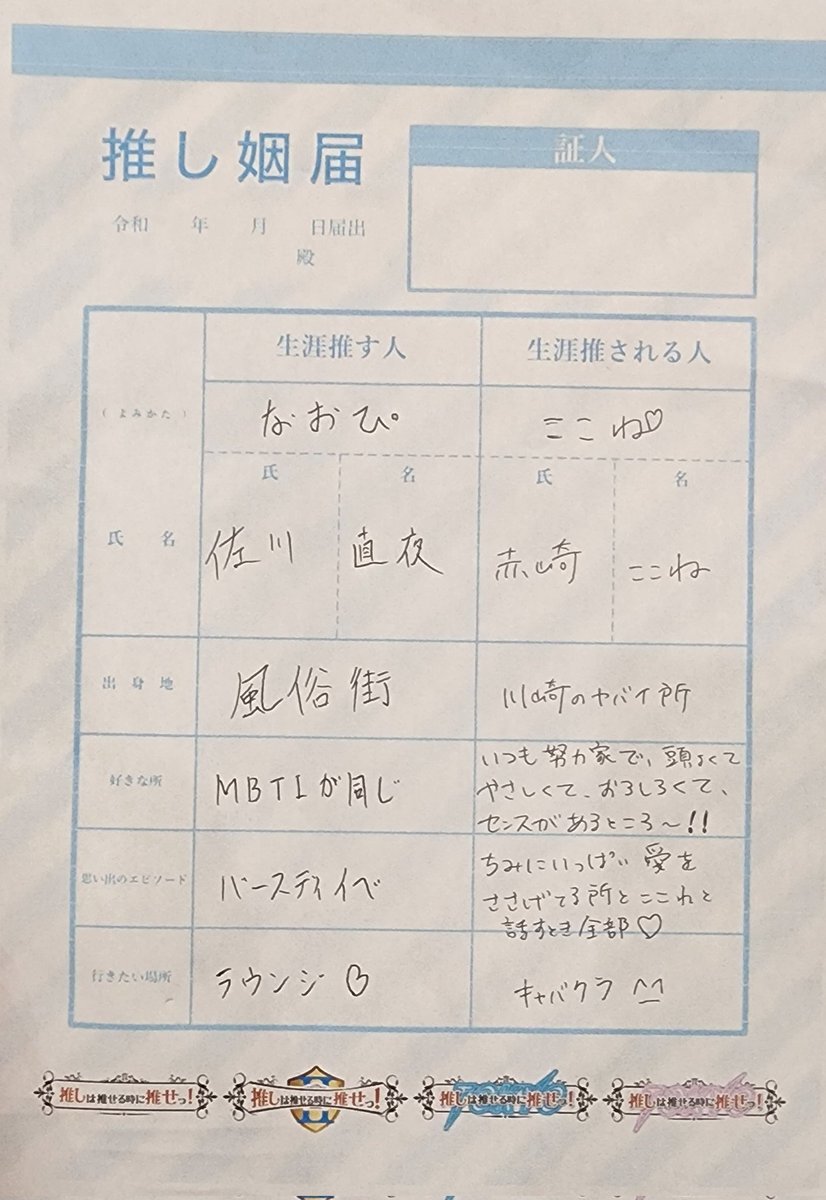 推し姻届
証人
令和 年 月 日届出
殿
生涯推す人 生涯推される人
(よみかた) なおぴ。 ここね♡
氏 名 氏 名
氏 名 佐川 直夜 赤崎 ここね
出身地 風俗街 川崎のヤバイ所
好きな所 MBTIが同じ
いつも努力家で、頭よくて
やさしくて、おもしろくて、
センスがあるところ〜!!
思い出のエピソード バースデイイベ
ちみにいっぱい愛を
ささげてる所とここねと
話すとき全部♡
行きたい場所 ラウンジ♡ キャバクラ ^_^
推しは推せる時に推せっ! 推しは推せる時に推せっ! 推しは推せる時に推せっ! 推しは推せる時に推せっ!